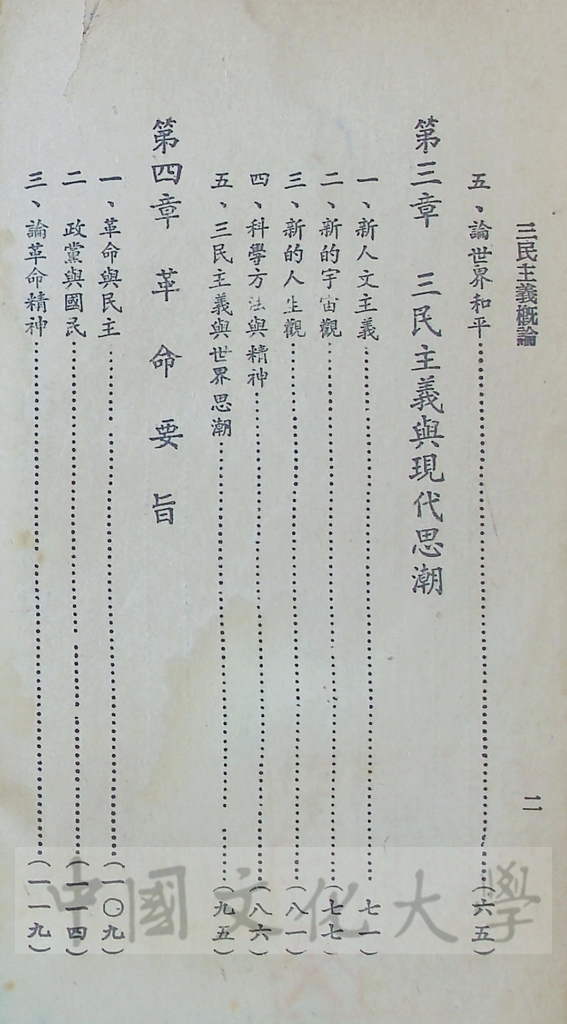 三民主義概論
二
五、論世界和平……(六五)
第三章 三民主義與現代思潮
一、新人文主義……七一)
二、新的宇宙觀……(七七)
三、新的人生觀……(八一)
四、科學方法與精神……(八六)
五、三民主義與世界思潮……(九五)
第四章 革命要旨
一、革命與民主……(一〇九)
二 政黨與國民……(一一四)
三、論革命精神……(一一九)
中國文化大學